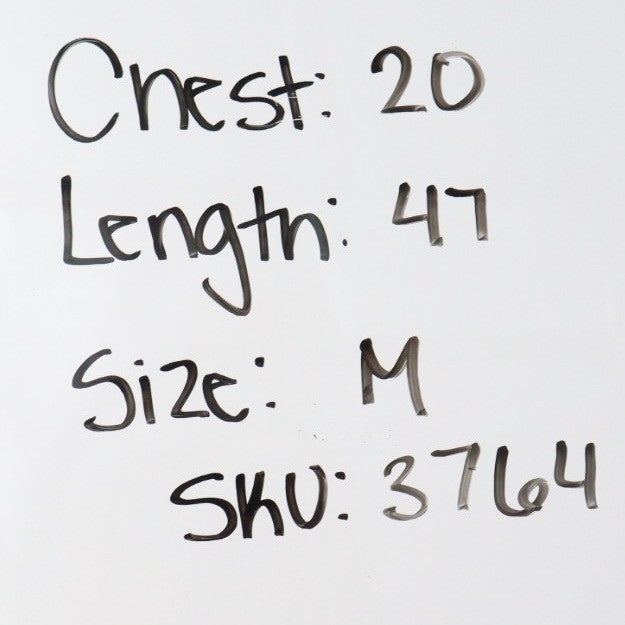 Chest: 20
Length: 47
Size: M
SKU: 3764